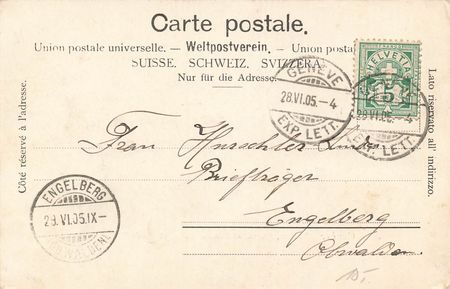 Carte postale.
Union postale universelle. — Weltpostverein. — Union posta
SUISSE. SCHWEIZ. SVIZZERA.
Nur für die Adresse.
Côté réservé à l'adresse.
Lato riservato all' indirizzo.
HELVETIA
5
GENÈVE
28.VI.05.–4
EXP. LETT.
28.VI.05.–4
EXP. LETT.
Frau
Briefträger
Engelberg
Obwalden
ENGELBERG
29.VI.05.IX–
15.–